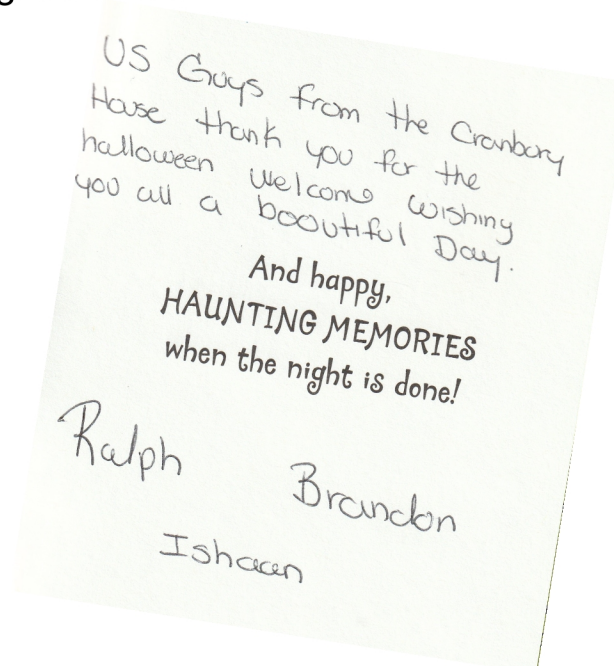 US Guys from the Cranbory
House thank you for the
halloween Welcome wishing
you all a booutiful Day.
And happy,
HAUNTING MEMORIES
when the night is done!
Ralph Brandon
Ishaan